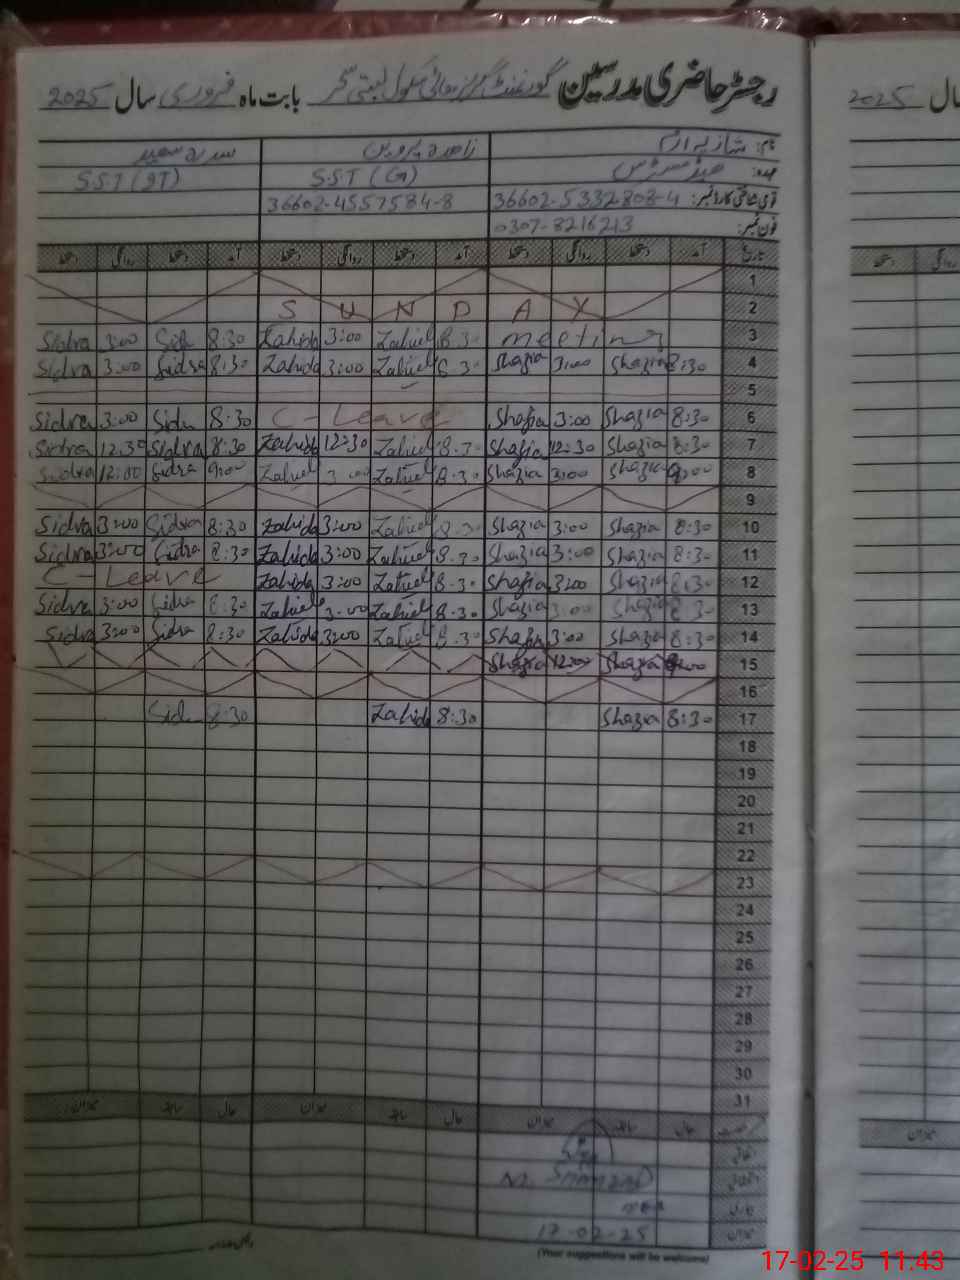 رجسٹر حاضری مدرسین گورنمنٹ گرلز ہائی سکول بستی بابت ماہ فروری سال 2025
نام: شازیہ ارم زاہدہ پروین سدرہ سعید
عہدہ: ہیڈ مسٹریس S.S.T (G) S.S.T (IT)
قومی شناختی کارڈ نمبر: 36602-5332808-4 36602-4557584-8
فون نمبر: 0307-8216213
تاریخ آمد دستخط روانگی دستخط آمد دستخط روانگی دستخط آمد دستخط روانگی دستخط
1
S U N D A Y 2
Sidra 3:00 Sidr 8:30 Zahida 3:00 Zahid 8:30 meeting 3
Sidra 3:00 Sidra 8:30 Zahida 3:00 Zahid 8:30 Shazia 3:00 Shazia 8:30 4
5
Sidra 3:00 Sidr 8:30 C-Leave Shazia 3:00 Shazia 8:30 6
Sidra 12:30 Sidra 8:30 Zahida 12:30 Zahid 8:30 Shazia 12:30 Shazia 8:30 7
Sidra 12:00 Sidra 9:00 Zahid 3:00 Zahid 8:30 Shazia 3:00 Shazia 9:00 8
9
Sidra 3:00 Sidra 8:30 Zahida 3:00 Zahid 8:30 Shazia 3:00 Shazia 8:30 10
Sidra 3:00 Sidra 8:30 Zahida 3:00 Zahid 8:30 Shazia 3:00 Shazia 8:30 11
C-Leave Zahida 3:00 Zahid 8:30 Shazia 3:00 Shazia 8:30 12
Sidra 3:00 Sidra 8:30 Zahid 3:00 Zahid 8:30 Shazia 3:00 Shazia 8:30 13
Sidra 3:00 Sidra 8:30 Zahida 3:00 Zahid 8:30 Shazia 3:00 Shazia 8:30 14
Shazia 12:00 Shazia 9:00 15
16
Sidr 8:30 Zahid 8:30 Shazia 8:30 17
18
19
20
21
22
23
24
25
26
27
28
29
30
31
رخصت حال سابقہ میزان حال سابقہ میزان حال سابقہ میزان
اتفاقی
میزان
17-02-25
(Your suggestions will be welcome)
2025 سال
دستخط روانگی
میزان
17-02-25 11.43